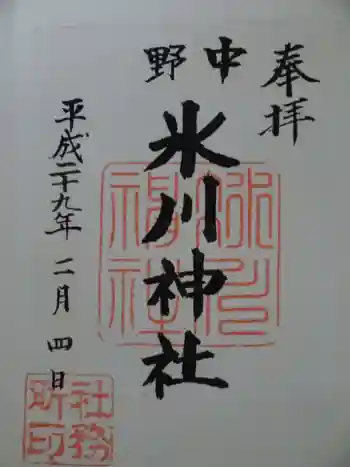 奉拝
中野
氷川神社
平成二十九年二月四日
氷川
神社
社務
所印